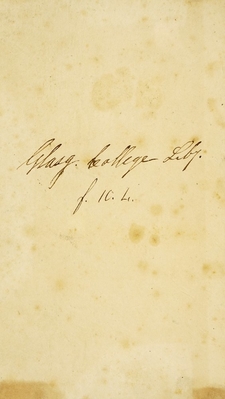 Glasg. College Liby.
f. K. 4.